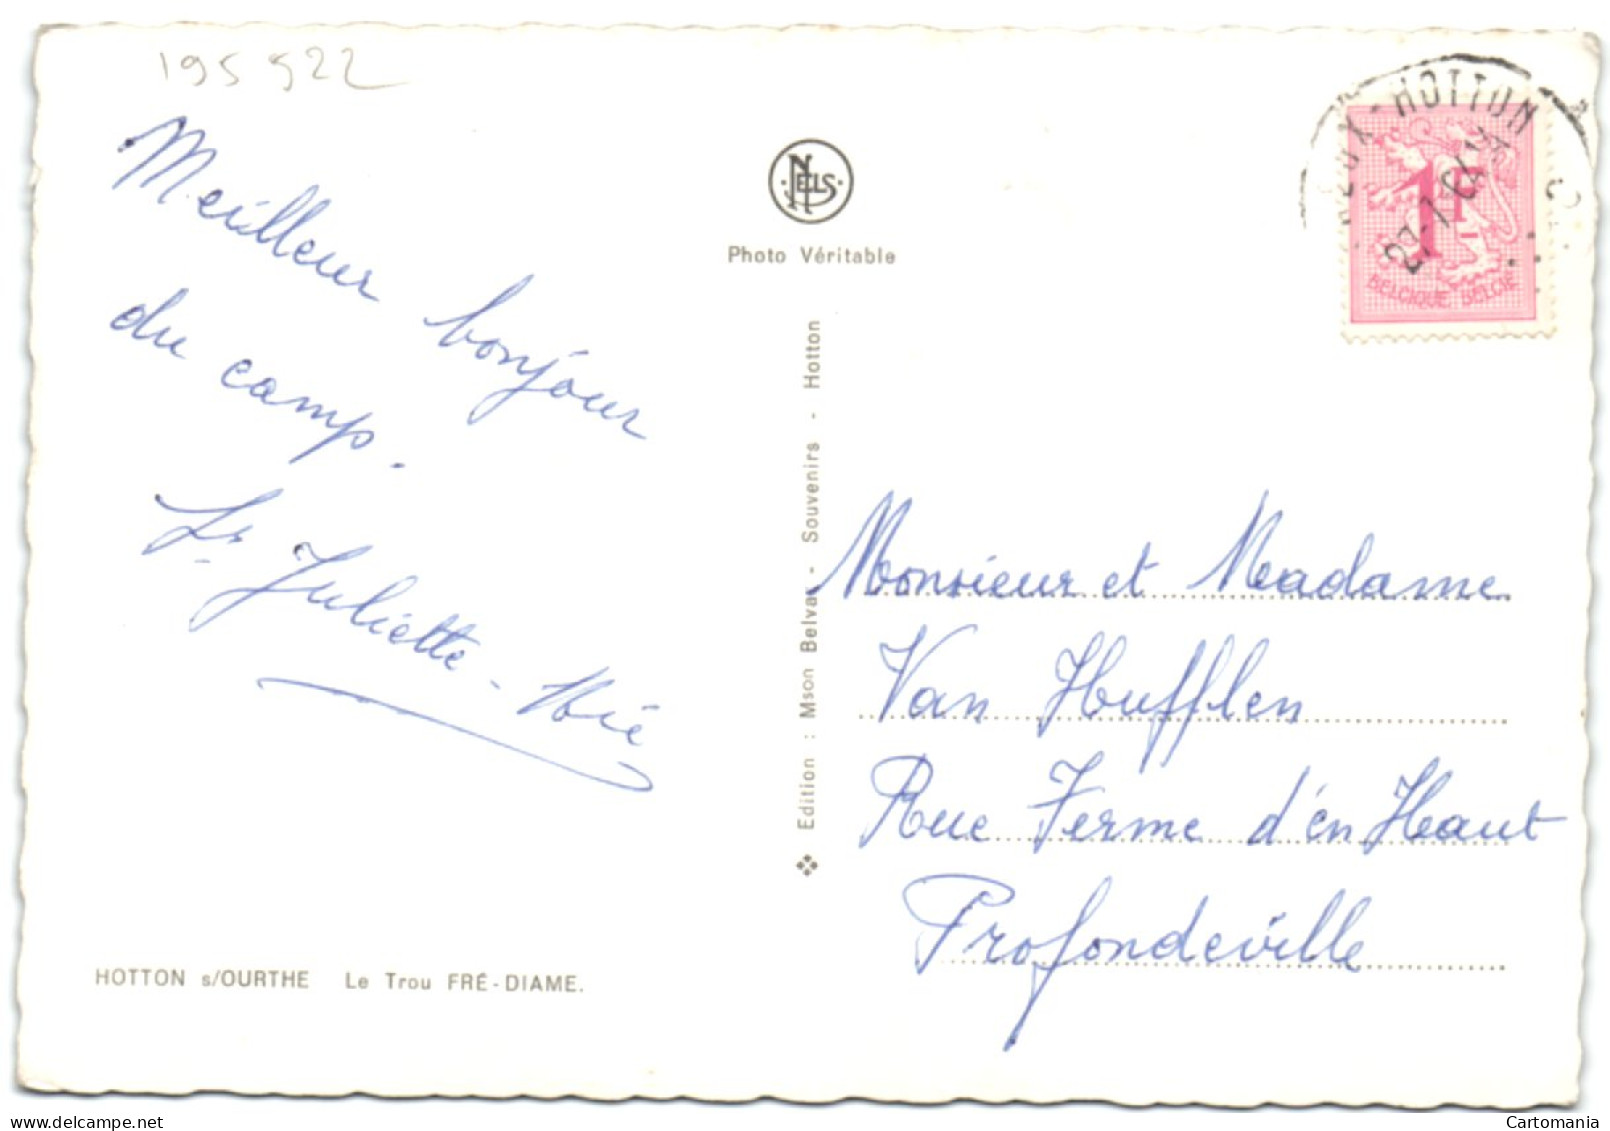 195 522
Meilleur bonjour
du camp.
Sr Juliette-Mie
NELS
Photo Véritable
Edition : Mson Belvar - Souvenirs - Hotton
HOTTON
1F
BELGIQUE BELGIE
Monsieur et Madame
Van Hufflen
Rue Ferme d'en Haut
Profondeville
HOTTON s/OURTHE Le Trou FRÉ-DIAME.
delcampe.net
Cartomania